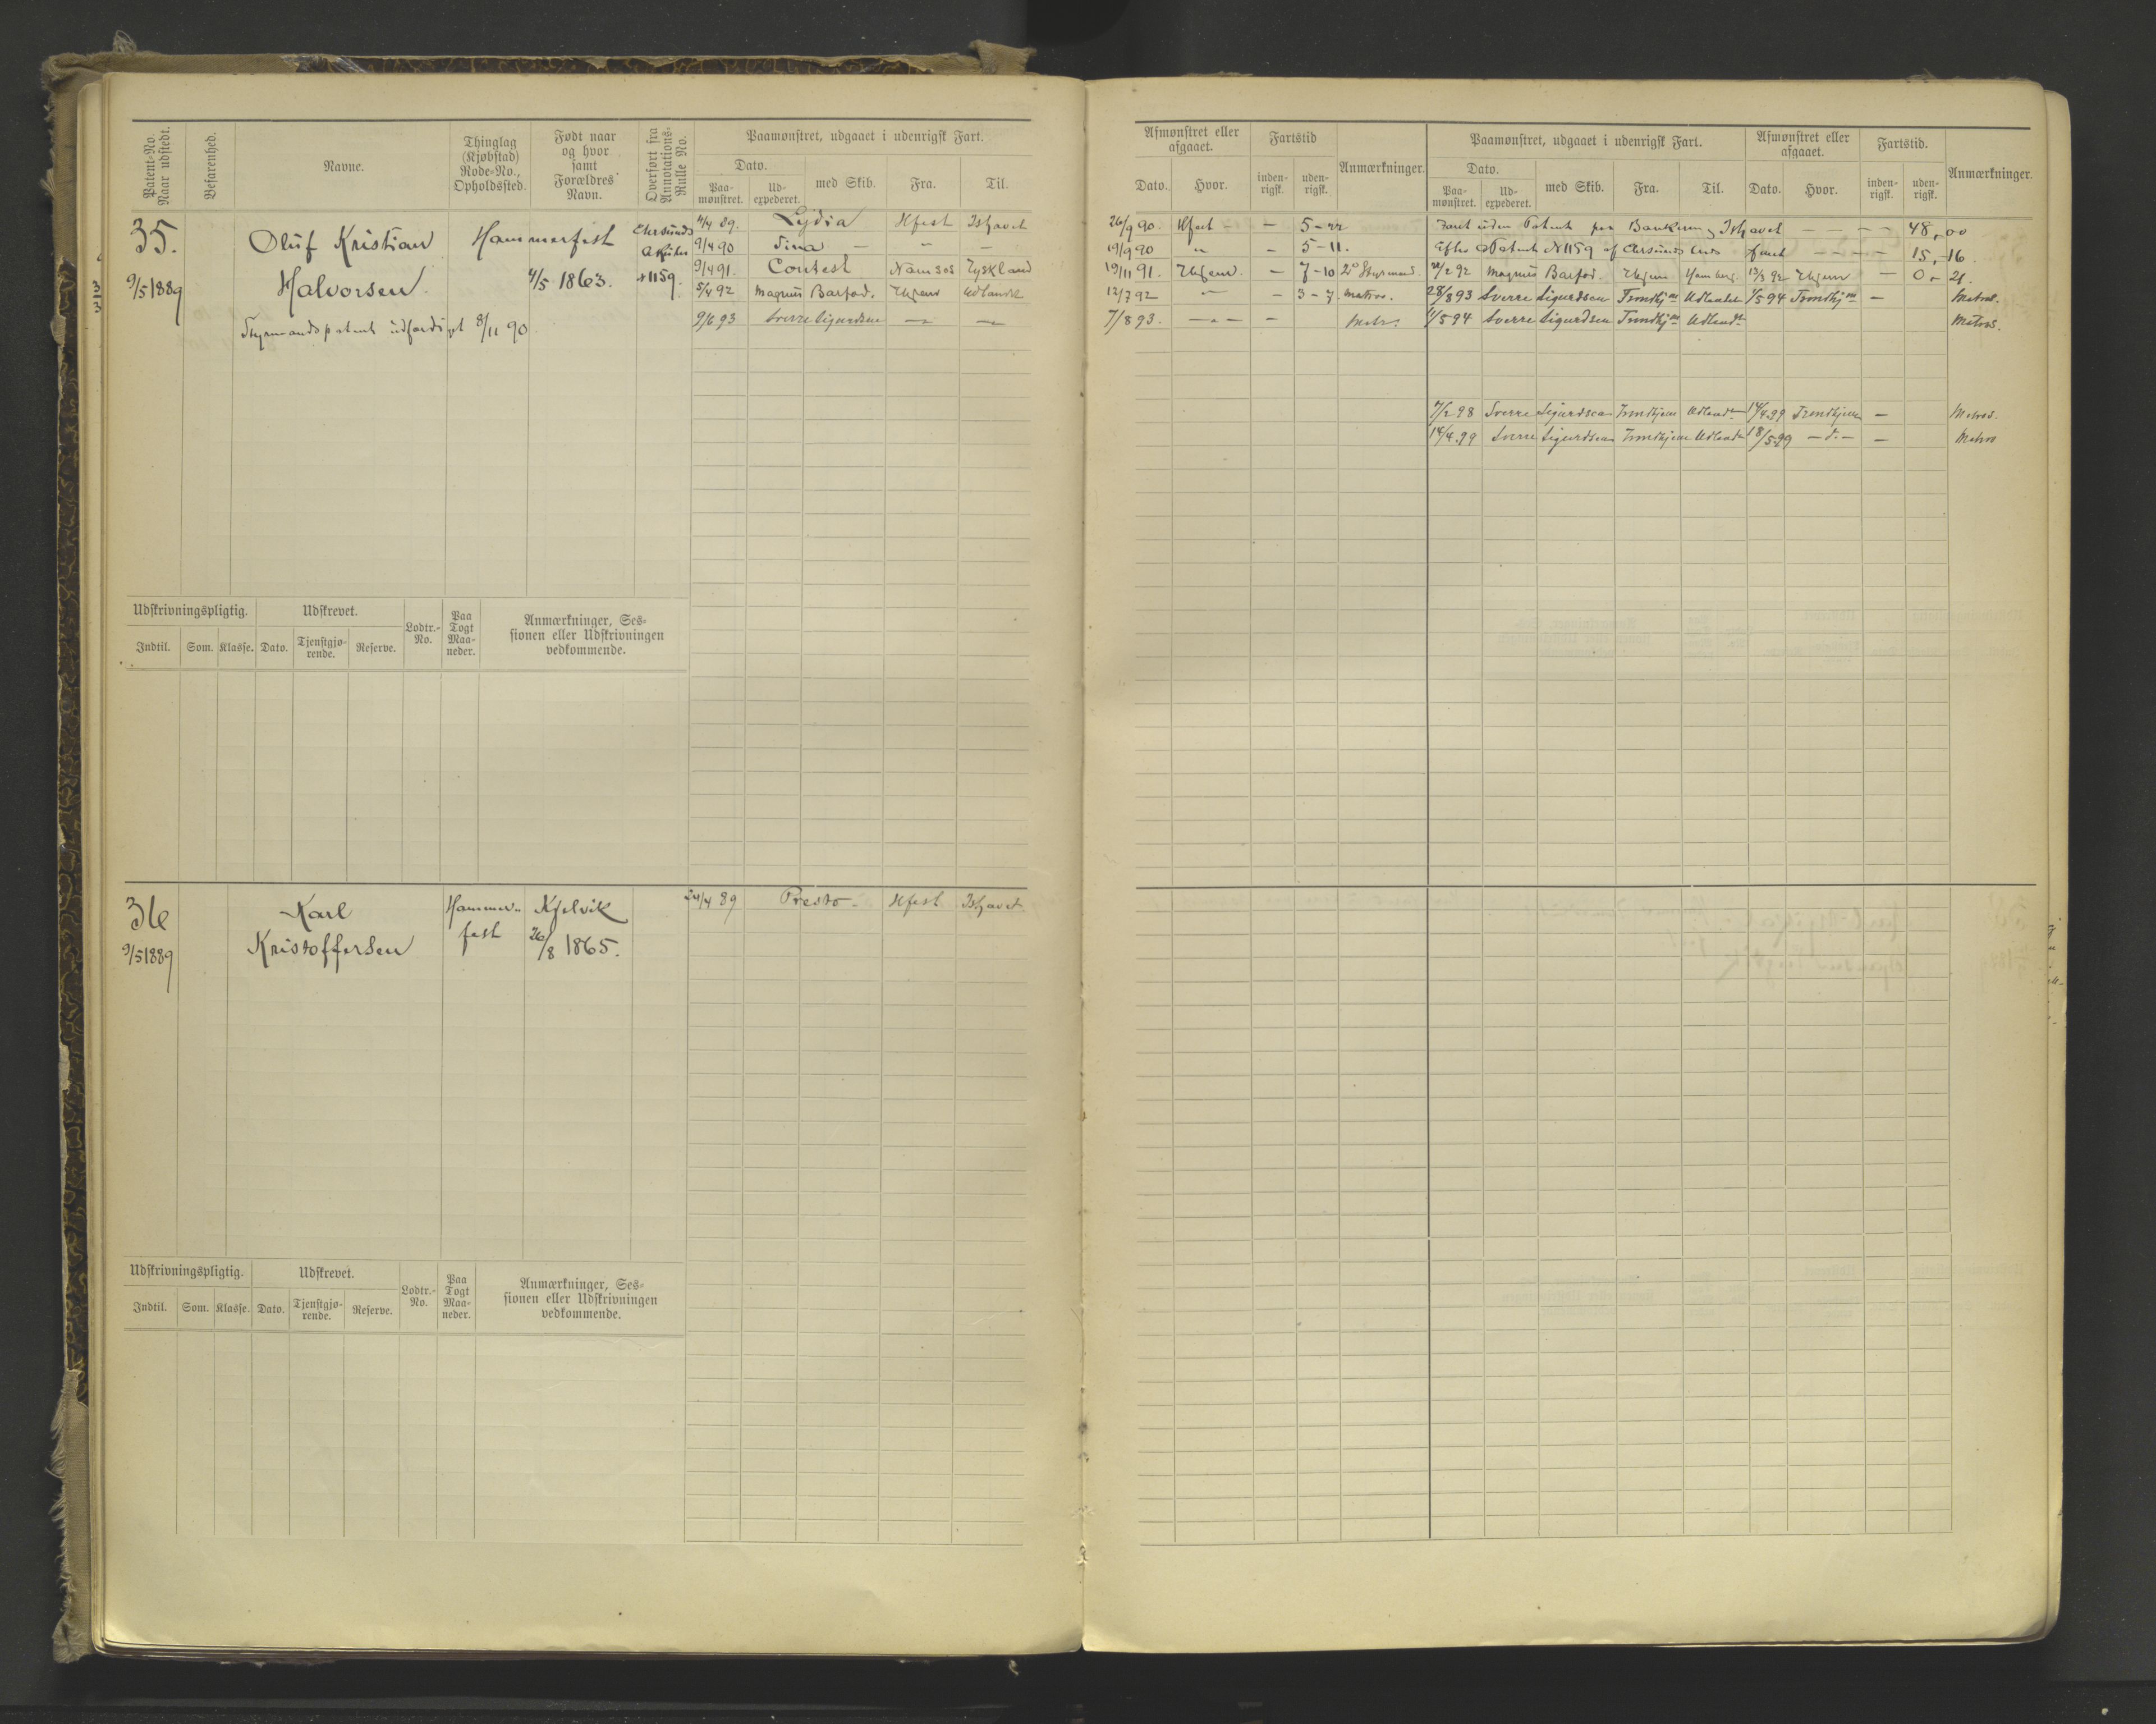 Patent-No. Naar udstedt.
Befarenhed.
Navne.
Thinglag (Kjøbstad) Rode-No., Opholdssted.
Født naar og hvor samt Forældres Navn.
Overført fra Annotations-Rulle No.
Paamønstret, udgaaet i udenrigsk Fart.
Dato.
Paa-mønstret.
Ud-expederet.
med Skib.
Fra.
Til.
35.
9/5 1889
Oluf Kristian
Halvorsen
Hammerfest
4/5 1863.
Chrsunds
1159.
Styrmandspatent udfærdiget 8/11 90
4/4 89. Lydia Hfest Ishavet
9/4 90 Tina — " —
9/4 91. Contest Namsos Tyskland
5/4 92 Magnus Barfod. Thjem Udlandet
9/6 93 Sverre Sigurdsen — " — — " —
Udskrivningspligtig.
Udskrevet.
Lodtr.-No.
Paa Togt Maa-neder.
Anmærkninger, Ses-sionen eller Udskrivningen vedkommende.
Indtil.
Som.
Klasse.
Dato.
Tjenstgjø-rende.
Reserve.
36
9/5 1889
Karl
Kristoffersen
Hammer-
fest
Kjelvik
26/8 1865.
24/4 89 Presto - Hfest Ishavet
Udskrivningspligtig.
Udskrevet.
Lodtr.-No.
Paa Togt Maa-neder.
Anmærkninger, Ses-sionen eller Udskrivningen vedkommende.
Indtil.
Som.
Klasse.
Dato.
Tjenstgjø-rende.
Reserve.
Afmønstret eller afgaaet.
Fartstid
Anmærkninger.
Dato.
Hvor.
inden-rigsk.
uden-rigsk.
Paamønstret, udgaaet i udenrigsk Fart.
Afmønstret eller afgaaet.
Fartstid.
Anmærkninger.
Dato.
Paa-mønstret.
Ud-expederet.
med Skib.
Fra.
Til.
Dato.
Hvor.
inden-rigsk.
uden-rigsk.
26/9 90. Hfest - — 5-22 Faret uden Patent paa Ishavet — — — 48,00
19/9 90 " - 5-11. Efter Patent N 1159 af Chrsunds faret — — — 15,-16
19/11 91. Thjem. - 7-10 2d Styrmand. /2 92 Magnus Barfod. Thjem Hamburg 13/3 92 Thjem — 0-21.
12/7 92 " - 3-7. Matros. 28/8 93 Sverre Sigurdsen Trondhjem Udlandet 1/5 94 Trondhjem — Matros.
7/8 93. — " — - Matr. 1/5 94 Sverre Sigurdsen Trondhjem Udlandet Matros.
/2 98 Sverre Sigurdsen Trondhjem Udlandet 14/4 99 Trondhjem — Matros.
14/4 99 Sverre Sigurdsen Trondhjem Udlandet 18/5 99 — d. — — Matros